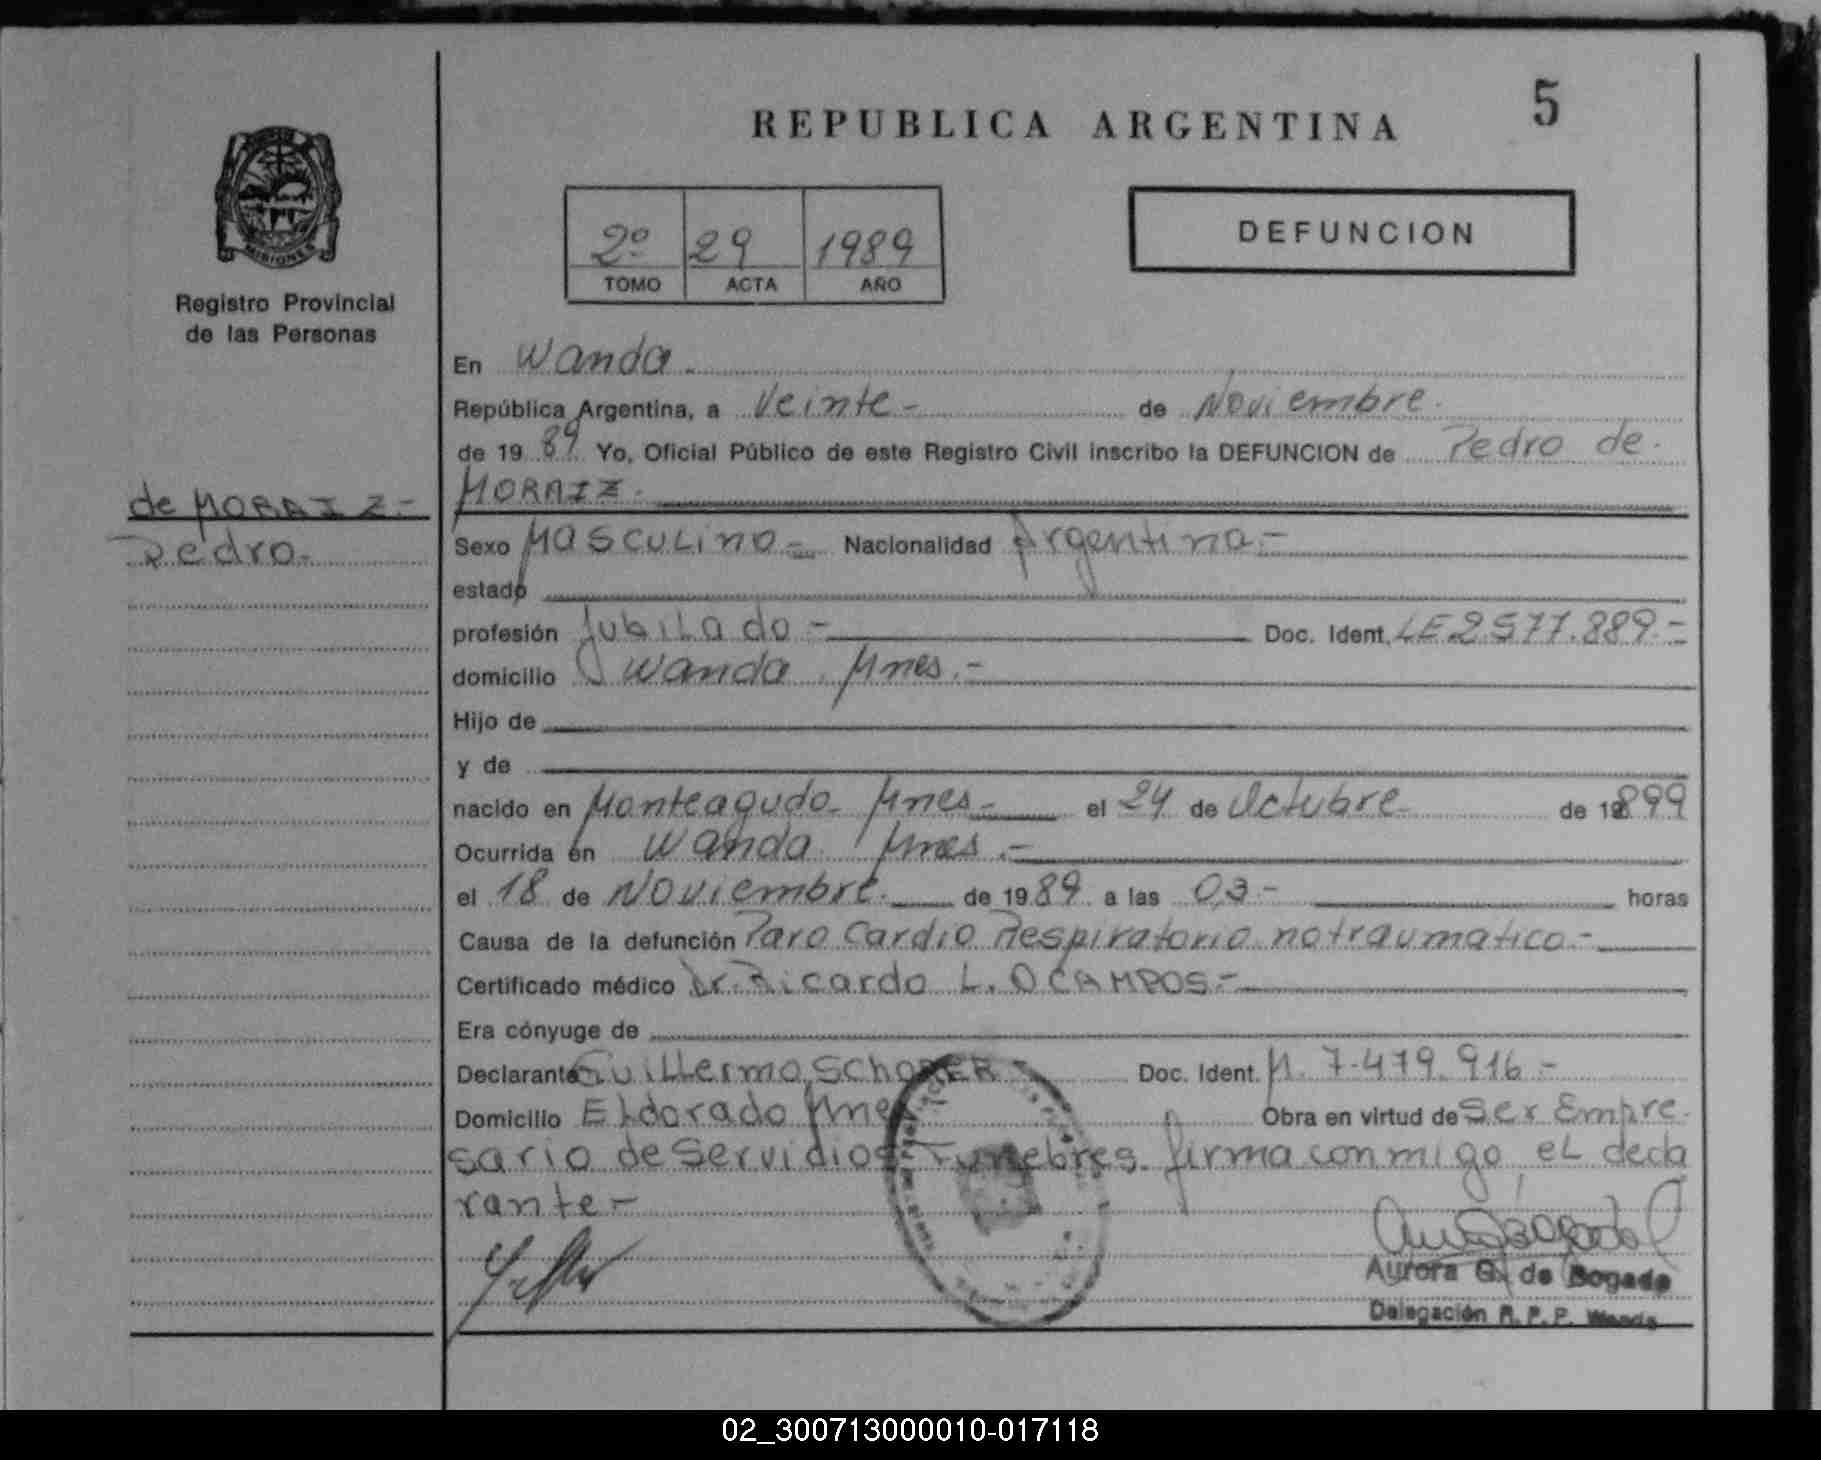 REPUBLICA ARGENTINA
5
MISIONES
Registro Provincial
de las Personas
2º 29 1989
TOMO ACTA AÑO
DEFUNCION
En Wanda.
República Argentina, a Veinte - de Noviembre.
de 19 89. Yo, Oficial Público de este Registro Civil inscribo la DEFUNCION de Pedro de
MORAIZ.
de MORAIZ.-
Pedro.
Sexo Masculino - Nacionalidad Argentina.-
estado
profesión Jubilado - Doc. Ident. LE 2.577.889.-
domicilio Wanda Mnes.-
Hijo de
y de
nacido en Monteagudo Mnes.- el 24 de Octubre de 1899
Ocurrida en Wanda Mnes.-
el 18 de Noviembre. de 1989 a las 03.- horas
Causa de la defunción Paro Cardio Respiratorio no traumatico.-
Certificado médico Dr. Ricardo L. OCAMPOS.-
Era cónyuge de
Declarante Guillermo SCHOBER - Doc. Ident. M. 7.479.916.-
Domicilio Eldorado Mnes Obra en virtud de Ser Empre
sario de Servidios Funebres. firma conmigo el decla
rante -
Aurora G. de Bogado
Delegación R. P. P. Wanda
02_300713000010-017118